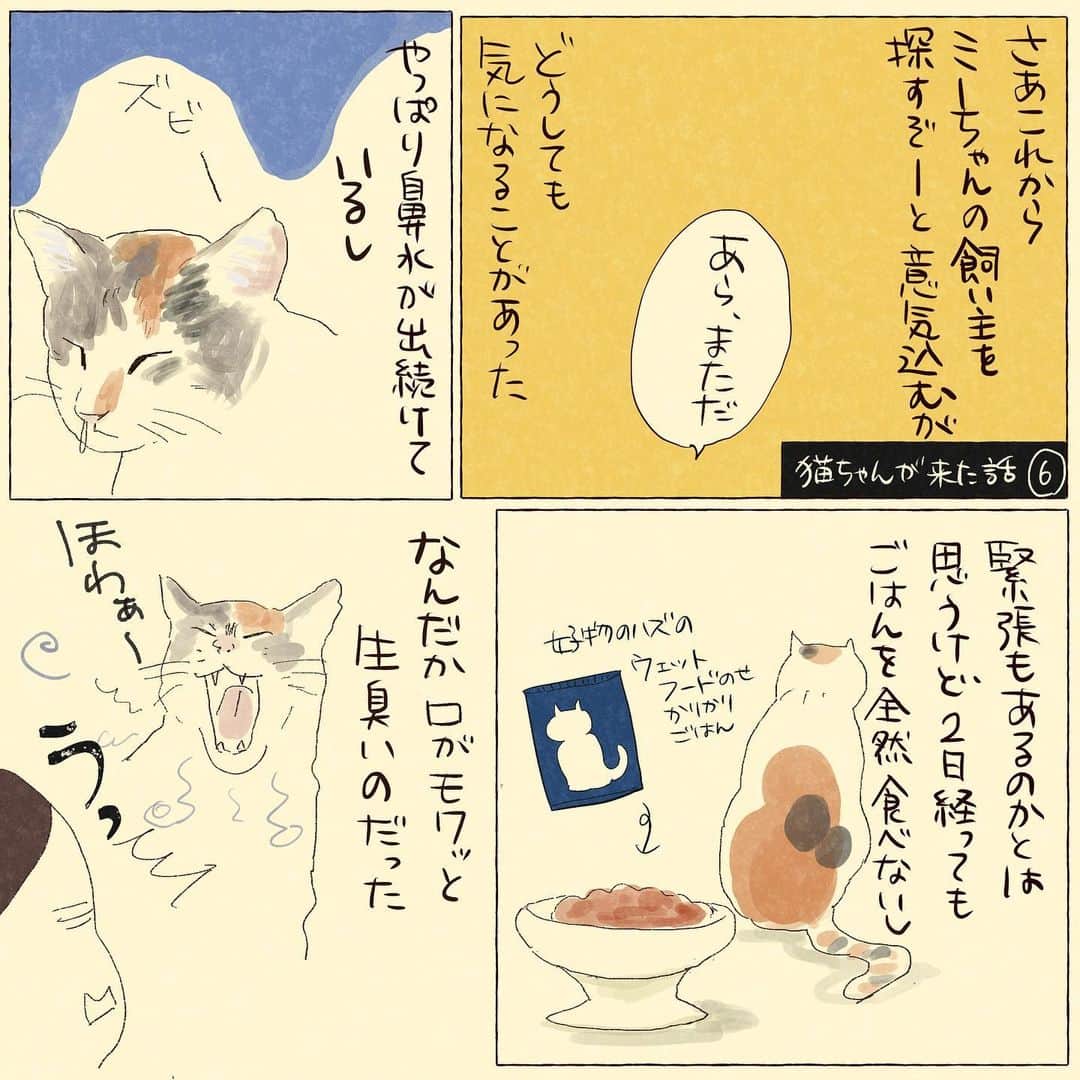 さあこれから
ミーちゃんの飼い主を
探すぞーと意気込むが
あら、まただ
どうしても
気になることがあった
猫ちゃんが来た話⑥
ズビー
やっぱり鼻水が出続けて
いるし
緊張もあるのかとは
思うけど2日経っても
ごはんを全然食べないし
好物のハズの
ウェット
フードのせ
かりかり
ごはん
なんだか口がモワッと
生臭いのだった
ほわぁ〜
うっ